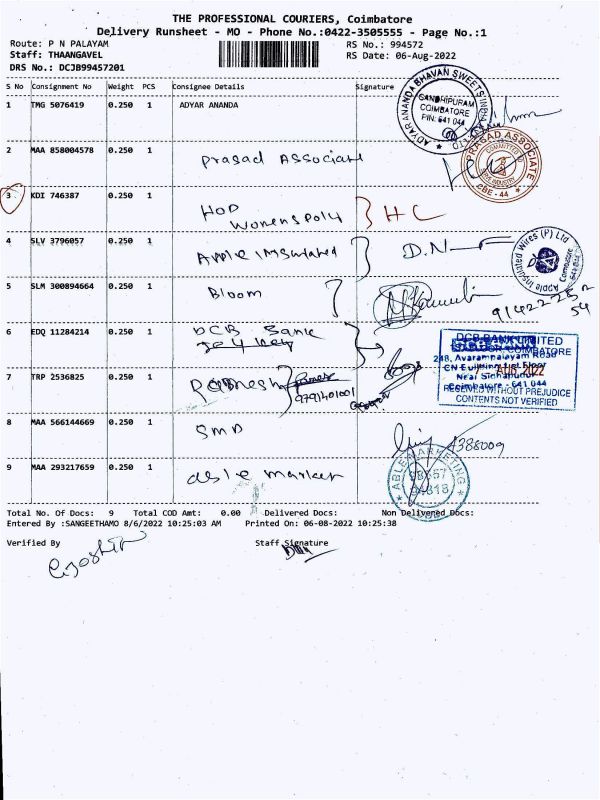 THE PROFESSIONAL COURIERS, Coimbatore
Delivery Runsheet - MO - Phone No.:0422-3505555 - Page No.:1
Route: P N PALAYAM RS No.: 994572
Staff: THAANGAVEL RS Date: 06-Aug-2022
DRS No.: DCJB99457201
S No Consignment No Weight PCS Consignee Details Signature
1 TMG 5076419 0.250 1 ADYAR ANANDA
ADYAR ANANDA BHAVAN SWEETS INDIA
GANDHIPURAM
COIMBATORE
PIN: 641 044
2 MAA 858004578 0.250 1 Prasad Associate
PRASAD ASSOCIATE
CBE - 44
3 KDI 746387 0.250 1 HOD
Womens poly HC
4 SLV 3796057 0.250 1 Apple Insulated D.N
Apple Insulated Wires (P) Ltd
Coimbatore
5 SLM 300894664 0.250 1 Bloom
6 EDQ 11284214 0.250 1 DCB Bank
DCB BANK LIMITED
248, Avarampalayam Road
Near Sidhapudur
Coimbatore - 641 044
AUG 2022
RECEIVED WITHOUT PREJUDICE
CONTENTS NOT VERIFIED
7 TRP 2536825 0.250 1
9791401001
8 MAA 566144669 0.250 1 SMD
9 MAA 293217659 0.250 1 able market
ABLE MARKETING
Total No. Of Docs: 9 Total COD Amt: 0.00 Delivered Docs: Non Delivered Docs:
Entered By :SANGEETHAMO 8/6/2022 10:25:03 AM Printed On: 06-08-2022 10:25:38
Verified By Staff Signature